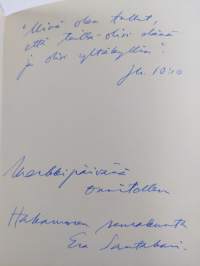 "Minä olen tullut,
että teillä olisi elämä
ja olisi yltäkyllin".
Jh. 10:10
Merkkipäivänä
onnitellen
Hakunilan seurakunta
Eva